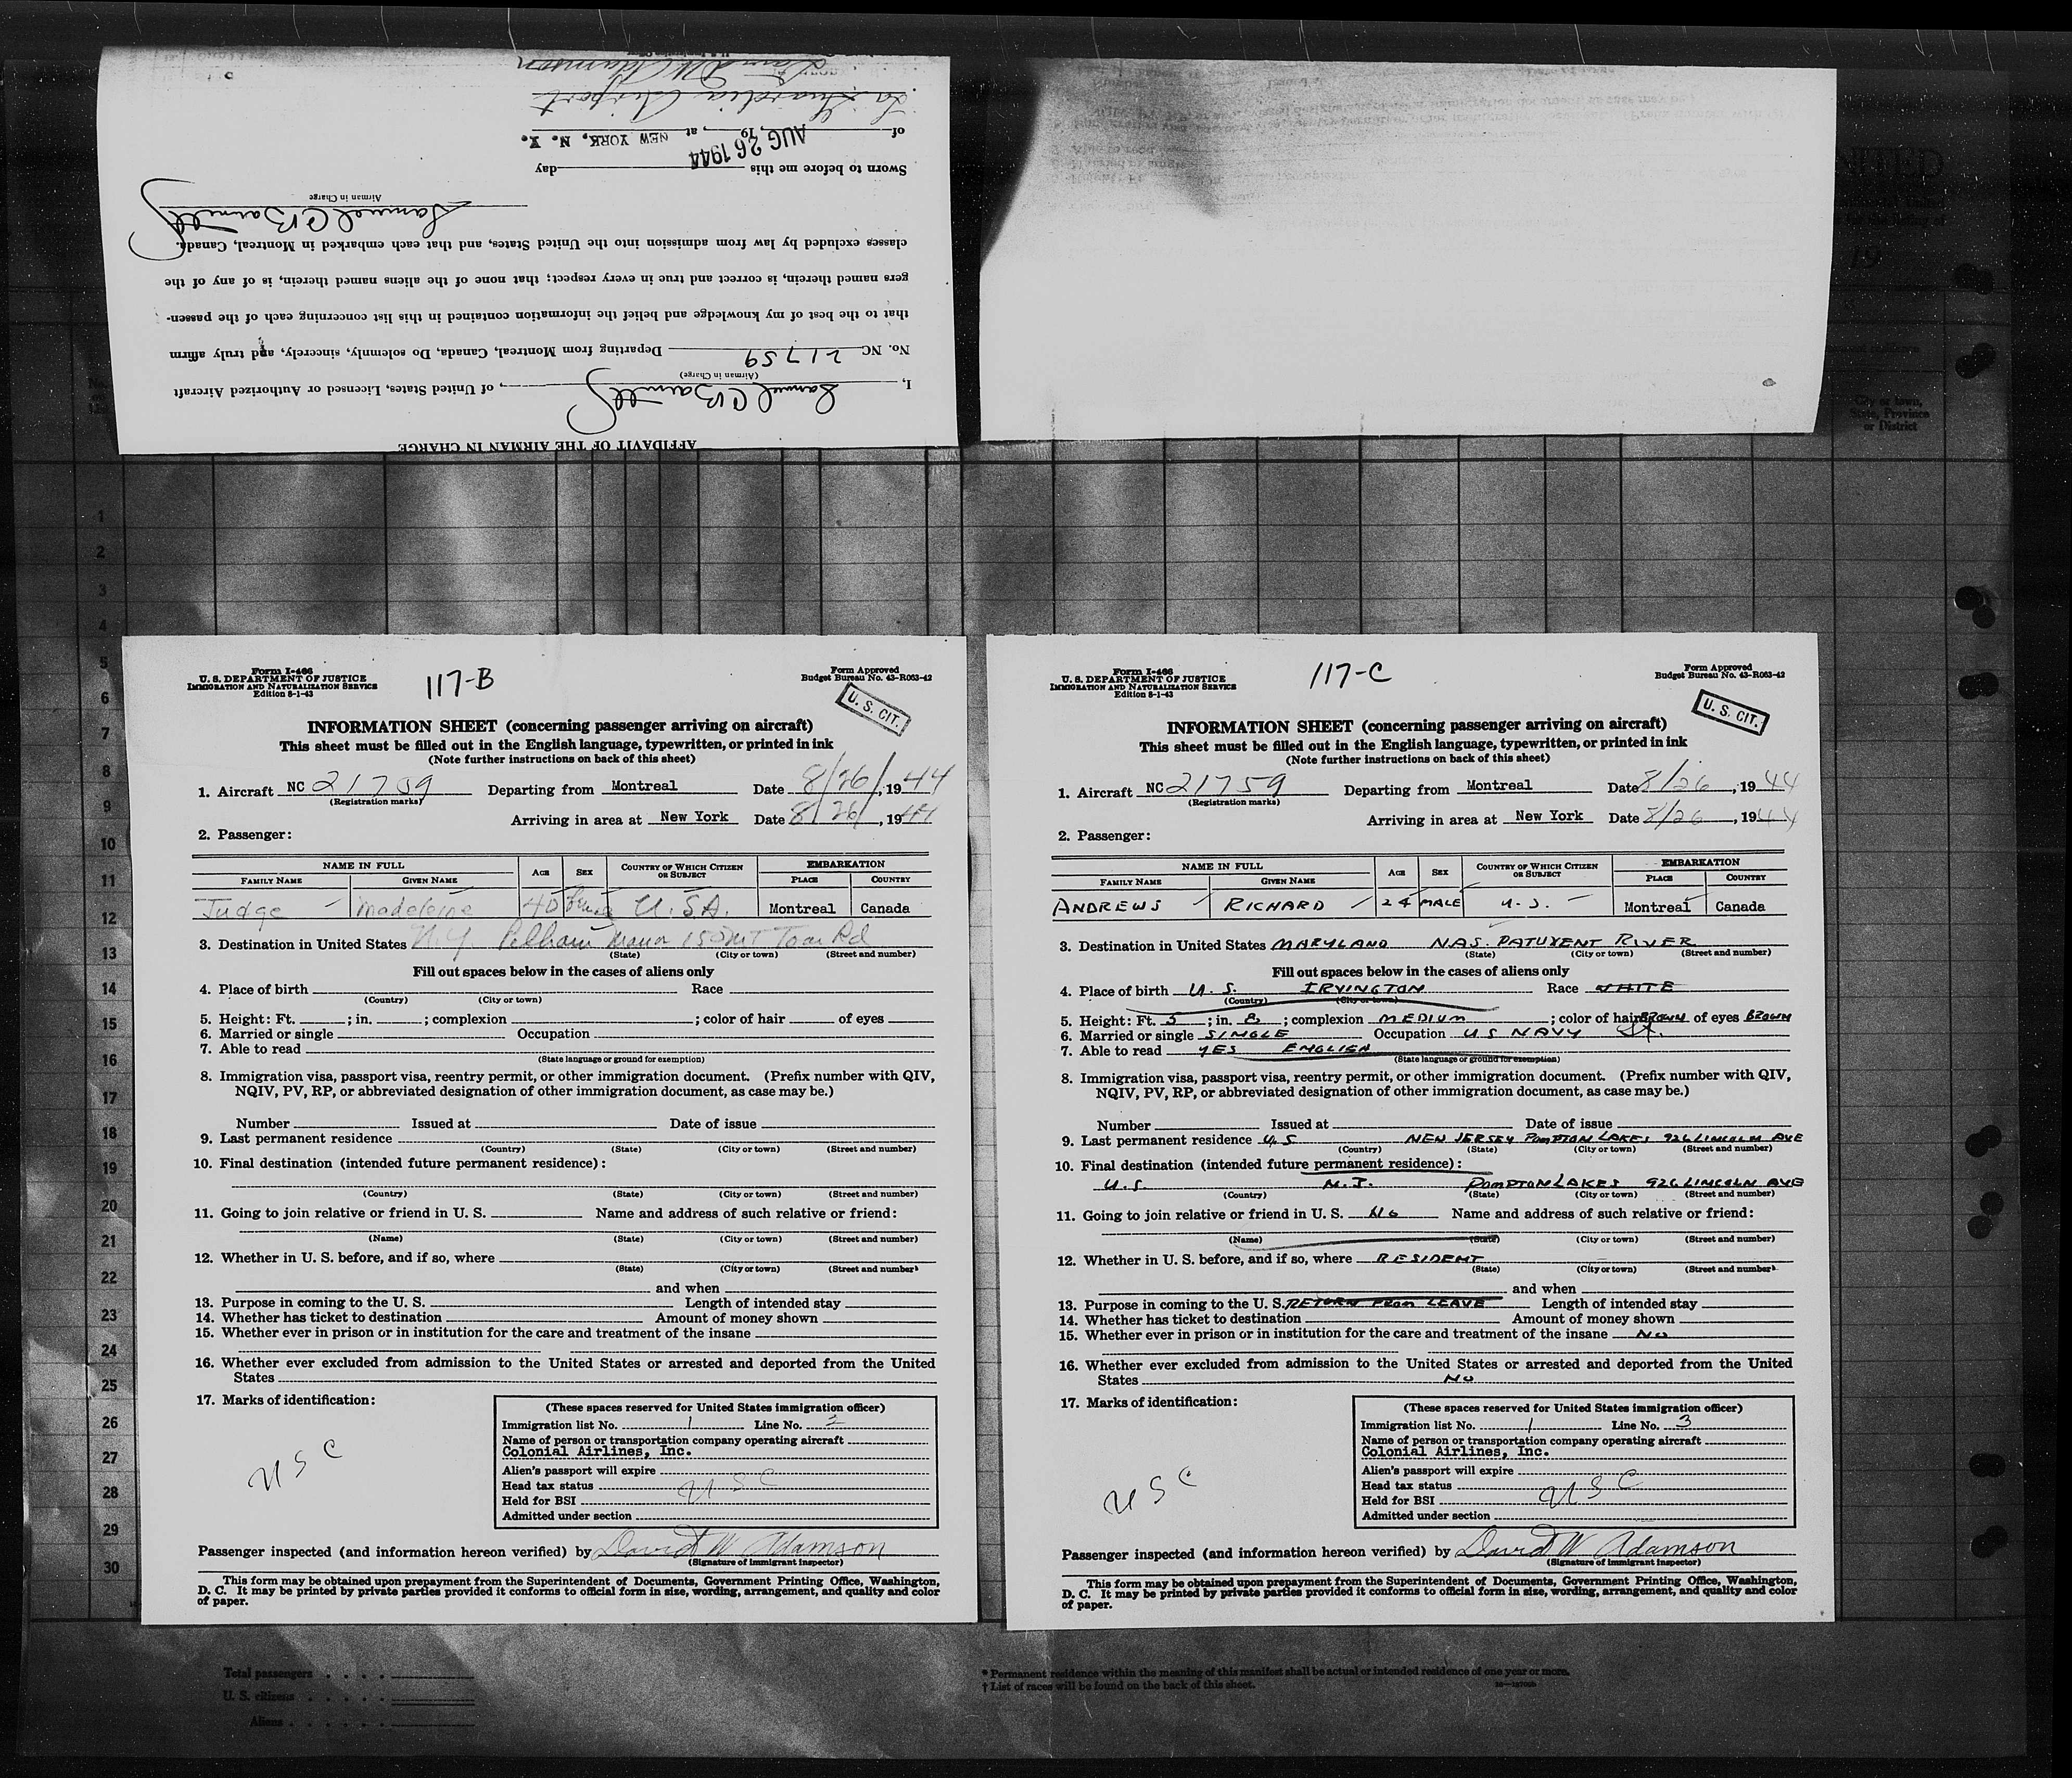 AFFIDAVIT OF THE AIRMAN IN CHARGE
I, Samuel C Barnitt, of United States, Licensed or Authorized Aircraft
(Airman in Charge)
No. NC 21759 Departing from Montreal, Canada, Do solemnly, sincerely, and truly affirm
that to the best of my knowledge and belief the information contained in this list concerning each of the passen-
gers named therein, is correct and true in every respect; that none of the aliens named therein, is of any of the
classes excluded by law from admission into the United States, and that each embarked in Montreal, Canada.
Samuel C Barnitt
Airman in Charge
Sworn to before me this day
of AUG 26 1944 19 , at NEW YORK, N. Y.
La Guardia Airport
David W Adamson
City or town,
State, Province
or District
1
2
3
4
5
6
7
8
9
10
11
12
13
14
15
16
17
18
19
20
21
22
23
24
25
26
27
28
29
30
Form I-466
U. S. DEPARTMENT OF JUSTICE
IMMIGRATION AND NATURALIZATION SERVICE
Edition 8-1-43
117-B
Form Approved
Budget Bureau No. 43-R063-42
U. S. CIT.
INFORMATION SHEET (concerning passenger arriving on aircraft)
This sheet must be filled out in the English language, typewritten, or printed in ink
(Note further instructions on back of this sheet)
1. Aircraft NC 21759 Departing from Montreal Date 8/26/, 1944
(Registration marks)
Arriving in area at New York Date 8/26/, 1944
2. Passenger:
NAME IN FULL AGE SEX COUNTRY OF WHICH CITIZEN OR SUBJECT EMBARKATION
FAMILY NAME GIVEN NAME PLACE COUNTRY
Judge Madeleine 40 U.S.A. Montreal Canada
3. Destination in United States N.Y. Pelham Manor Rd
(State) (City or town) (Street and number)
Fill out spaces below in the cases of aliens only
4. Place of birth Race
(Country) (City or town)
5. Height: Ft. ; in. ; complexion ; color of hair of eyes
6. Married or single Occupation
7. Able to read
(State language or ground for exemption)
8. Immigration visa, passport visa, reentry permit, or other immigration document. (Prefix number with QIV,
NQIV, PV, RP, or abbreviated designation of other immigration document, as case may be.)
Number Issued at Date of issue
9. Last permanent residence
(Country) (State) (City or town) (Street and number)
10. Final destination (intended future permanent residence):
(Country) (State) (City or town) (Street and number)
11. Going to join relative or friend in U. S. Name and address of such relative or friend:
(Name) (State) (City or town) (Street and number)
12. Whether in U. S. before, and if so, where
(State) (City or town) (Street and number)
and when
13. Purpose in coming to the U. S. Length of intended stay
14. Whether has ticket to destination Amount of money shown
15. Whether ever in prison or in institution for the care and treatment of the insane
16. Whether ever excluded from admission to the United States or arrested and deported from the United
States
17. Marks of identification:
USC
(These spaces reserved for United States immigration officer)
Immigration list No. 1 Line No. 2
Name of person or transportation company operating aircraft
Colonial Airlines, Inc.
Alien's passport will expire
Head tax status USC
Held for BSI
Admitted under section
Passenger inspected (and information hereon verified) by David W Adamson
(Signature of immigrant inspector)
This form may be obtained upon prepayment from the Superintendent of Documents, Government Printing Office, Washington,
D. C. It may be printed by private parties provided it conforms to official form in size, wording, arrangement, and quality and color
of paper.
Form I-466
U. S. DEPARTMENT OF JUSTICE
IMMIGRATION AND NATURALIZATION SERVICE
Edition 8-1-43
117-C
Form Approved
Budget Bureau No. 43-R063-42
U. S. CIT.
INFORMATION SHEET (concerning passenger arriving on aircraft)
This sheet must be filled out in the English language, typewritten, or printed in ink
(Note further instructions on back of this sheet)
1. Aircraft NC 21759 Departing from Montreal Date 8/26, 1944
(Registration marks)
Arriving in area at New York Date 8/26, 1944
2. Passenger:
NAME IN FULL AGE SEX COUNTRY OF WHICH CITIZEN OR SUBJECT EMBARKATION
FAMILY NAME GIVEN NAME PLACE COUNTRY
ANDREWS RICHARD 24 MALE U.S. Montreal Canada
3. Destination in United States MARYLAND NAS. PATUXENT RIVER
(State) (City or town) (Street and number)
Fill out spaces below in the cases of aliens only
4. Place of birth U.S. IRVINGTON Race WHITE
(Country) (City or town)
5. Height: Ft. 5 ; in. 8 ; complexion MEDIUM ; color of hair BROWN of eyes BROWN
6. Married or single SINGLE Occupation U S NAVY
7. Able to read YES ENGLISH
(State language or ground for exemption)
8. Immigration visa, passport visa, reentry permit, or other immigration document. (Prefix number with QIV,
NQIV, PV, RP, or abbreviated designation of other immigration document, as case may be.)
Number Issued at Date of issue
9. Last permanent residence U.S NEW JERSEY POMPTON LAKES 926 LINCOLN AVE
(Country) (State) (City or town) (Street and number)
10. Final destination (intended future permanent residence):
U.S. N.J. POMPTON LAKES 926 LINCOLN AVE
(Country) (State) (City or town) (Street and number)
11. Going to join relative or friend in U. S. NO Name and address of such relative or friend:
(Name) (State) (City or town) (Street and number)
12. Whether in U. S. before, and if so, where RESIDENT
(State) (City or town) (Street and number)
and when
13. Purpose in coming to the U. S. RETURN FROM LEAVE Length of intended stay
14. Whether has ticket to destination Amount of money shown
15. Whether ever in prison or in institution for the care and treatment of the insane NO
16. Whether ever excluded from admission to the United States or arrested and deported from the United
States NO
17. Marks of identification:
USC
(These spaces reserved for United States immigration officer)
Immigration list No. 1 Line No. 3
Name of person or transportation company operating aircraft
Colonial Airlines, Inc.
Alien's passport will expire
Head tax status USC
Held for BSI
Admitted under section
Passenger inspected (and information hereon verified) by David W Adamson
(Signature of immigrant inspector)
This form may be obtained upon prepayment from the Superintendent of Documents, Government Printing Office, Washington,
D. C. It may be printed by private parties provided it conforms to official form in size, wording, arrangement, and quality and color
of paper.
Total passengers
U. S. citizens
Aliens
* Permanent residence within the meaning of this manifest shall be actual or intended residence of one year or more.
† List of races will be found on the back of this sheet.